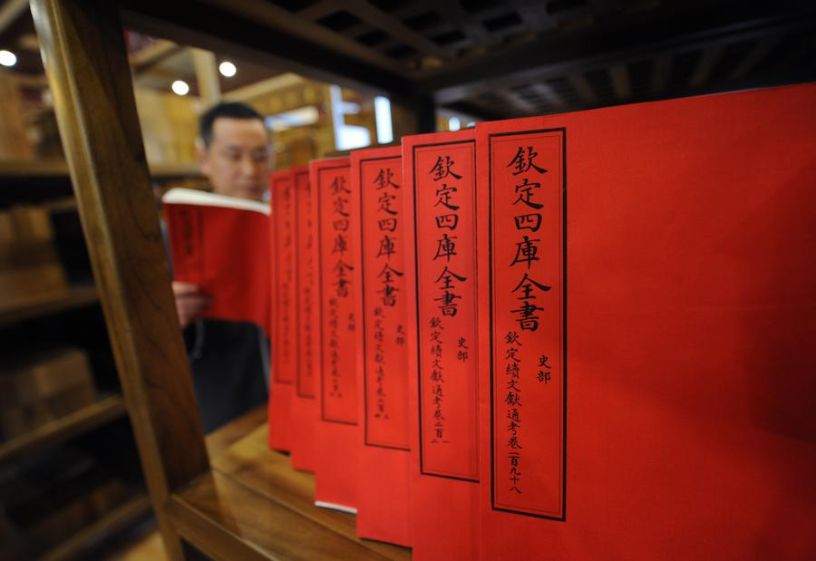 欽定四庫全書
史部
欽定續文獻通考卷一百九十八
欽定四庫全書
史部
欽定續文獻通考卷二百一二
欽定四庫全書
史部
欽定續文獻通考卷二百
欽定四庫全書
史部
欽定續文獻通考卷二百